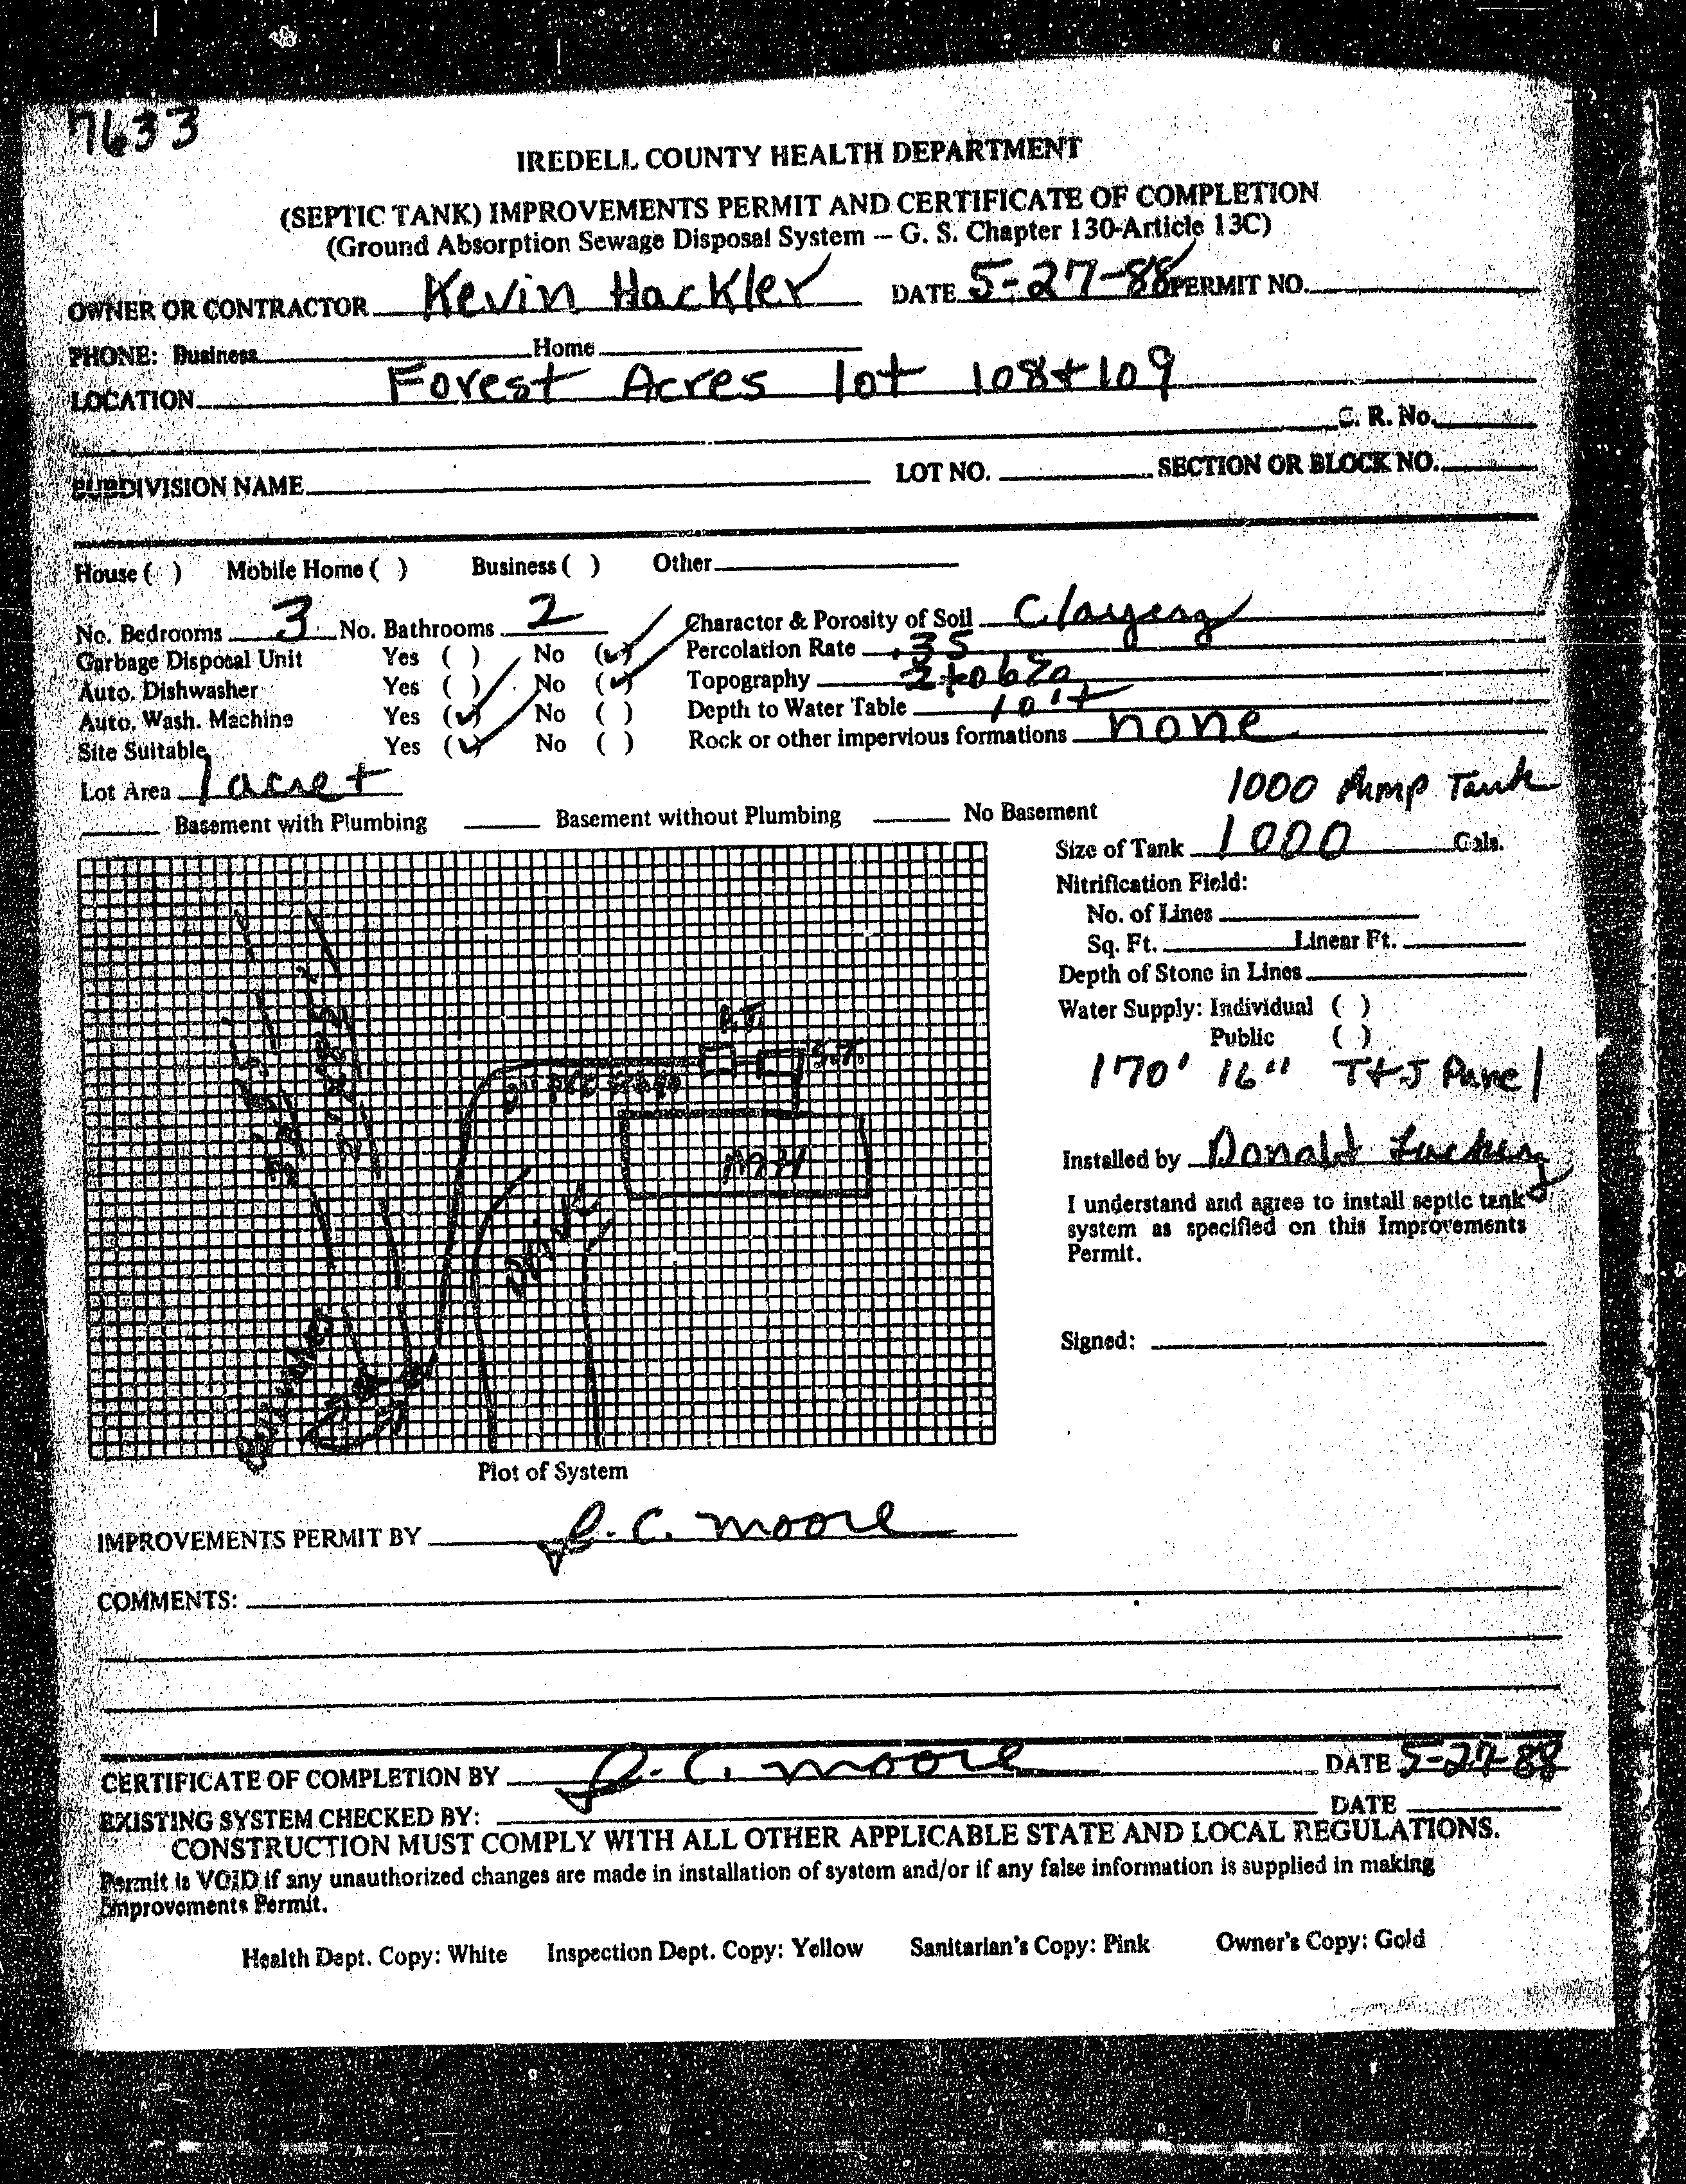 7633
IREDELL COUNTY HEALTH DEPARTMENT
(SEPTIC TANK) IMPROVEMENTS PERMIT AND CERTIFICATE OF COMPLETION
(Ground Absorption Sewage Disposal System -- G. S. Chapter 130-Article 13C)
OWNER OR CONTRACTOR Kevin Hackler DATE 5-27-88 PERMIT NO.
PHONE: Business Home
LOCATION Forest Acres lot 108+109
C. R. No.
SUBDIVISION NAME LOT NO. SECTION OR BLOCK NO.
House ( ) Mobile Home ( ) Business ( ) Other
No. Bedrooms 3 No. Bathrooms 2 Character & Porosity of Soil Clayey
Garbage Disposal Unit Yes ( ) No (✓) Percolation Rate .35
Auto. Dishwasher Yes ( ) No (✓) Topography 2 to 6%
Auto. Wash. Machine Yes (✓) No ( ) Depth to Water Table 10'+
Site Suitable Yes (✓) No ( ) Rock or other impervious formations none
Lot Area 1 acre +
1000 Pump Tank
Basement with Plumbing Basement without Plumbing No Basement
Size of Tank 1000 Gals.
Nitrification Field:
No. of Lines
Sq. Ft. Linear Ft.
Depth of Stone in Lines
Water Supply: Individual ( )
Public ( )
170' 16" T+J Panel
P.T.
S.T.
MH
Drive
Installed by Donald
I understand and agree to install septic tank
system as specified on this Improvements
Permit.
Signed:
Plot of System
IMPROVEMENTS PERMIT BY J. C. Moore
COMMENTS:
CERTIFICATE OF COMPLETION BY J. C. Moore DATE 5-27-88
EXISTING SYSTEM CHECKED BY: DATE
CONSTRUCTION MUST COMPLY WITH ALL OTHER APPLICABLE STATE AND LOCAL REGULATIONS.
Permit is VOID if any unauthorized changes are made in installation of system and/or if any false information is supplied in making
Improvements Permit.
Health Dept. Copy: White Inspection Dept. Copy: Yellow Sanitarian's Copy: Pink Owner's Copy: Gold